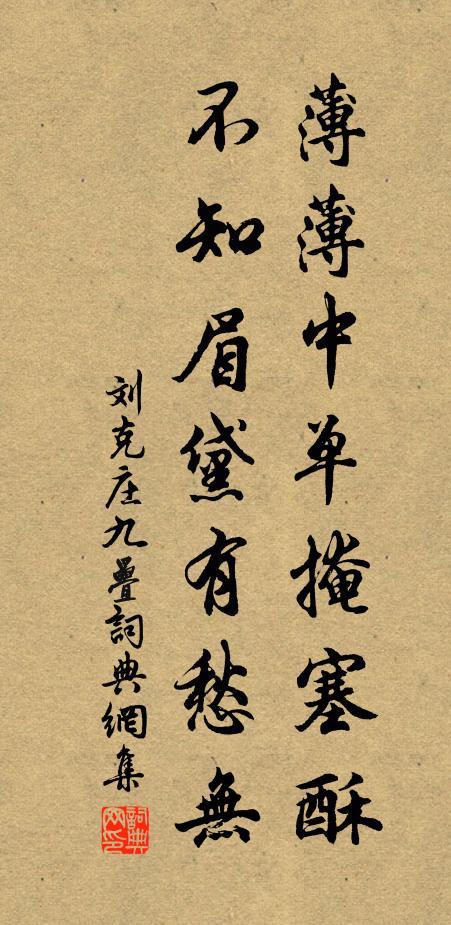 薄薄中单掩塞酥
不知眉黛有愁無
刘克庄九疊詞典網集
詞典網印